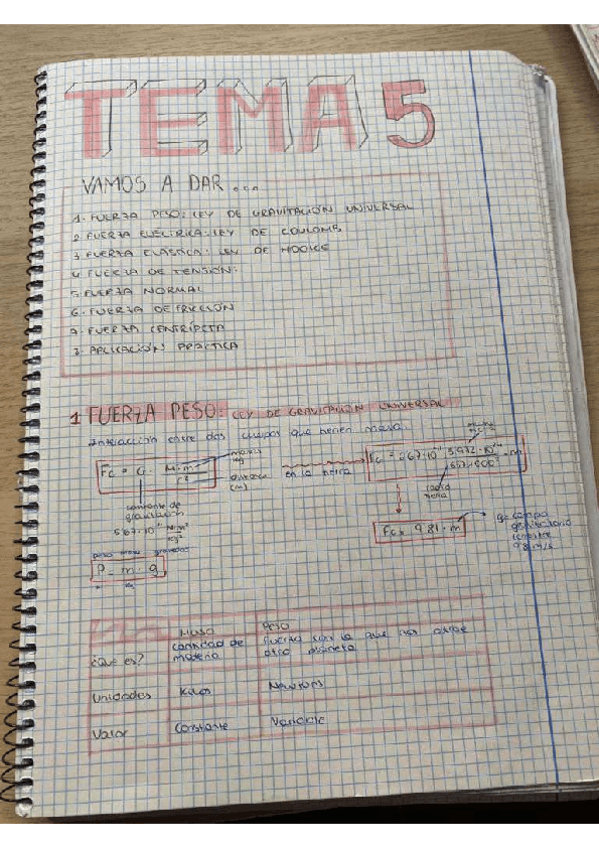 TEMA 5
VAMOS A DAR ...
1. FUERZA PESO: LEY DE GRAVITACIÓN UNIVERSAL
2. FUERZA ELÉCTRICA: LEY DE COULOMB
3. FUERZA ELÁSTICA: LEY DE HOOKE
4. FUERZA DE TENSIÓN:
5. FUERZA NORMAL
6. FUERZA DE FRICCIÓN
FUERZA CENTRÍPETA
APLICACIÓN PRÁCTICA
1 FUERZA PESO: LEY DE GRAVITACIÓN UNIVERSAL
Interacción entre dos cuerpos que tienen masa.
masa
kg
distancia
(m)
en la tierra
constante de
gravitación
radio
tierra
= 9.81 · m
campo
gravitatorio
terrestre
9.8 m/s
peso masa gravedad
P = m · g
Masa Peso
¿Qué es? cantidad de materia fuerza con la que nos atrae otro planeta
Unidades Kilos Newtons
Valor Constante Variable